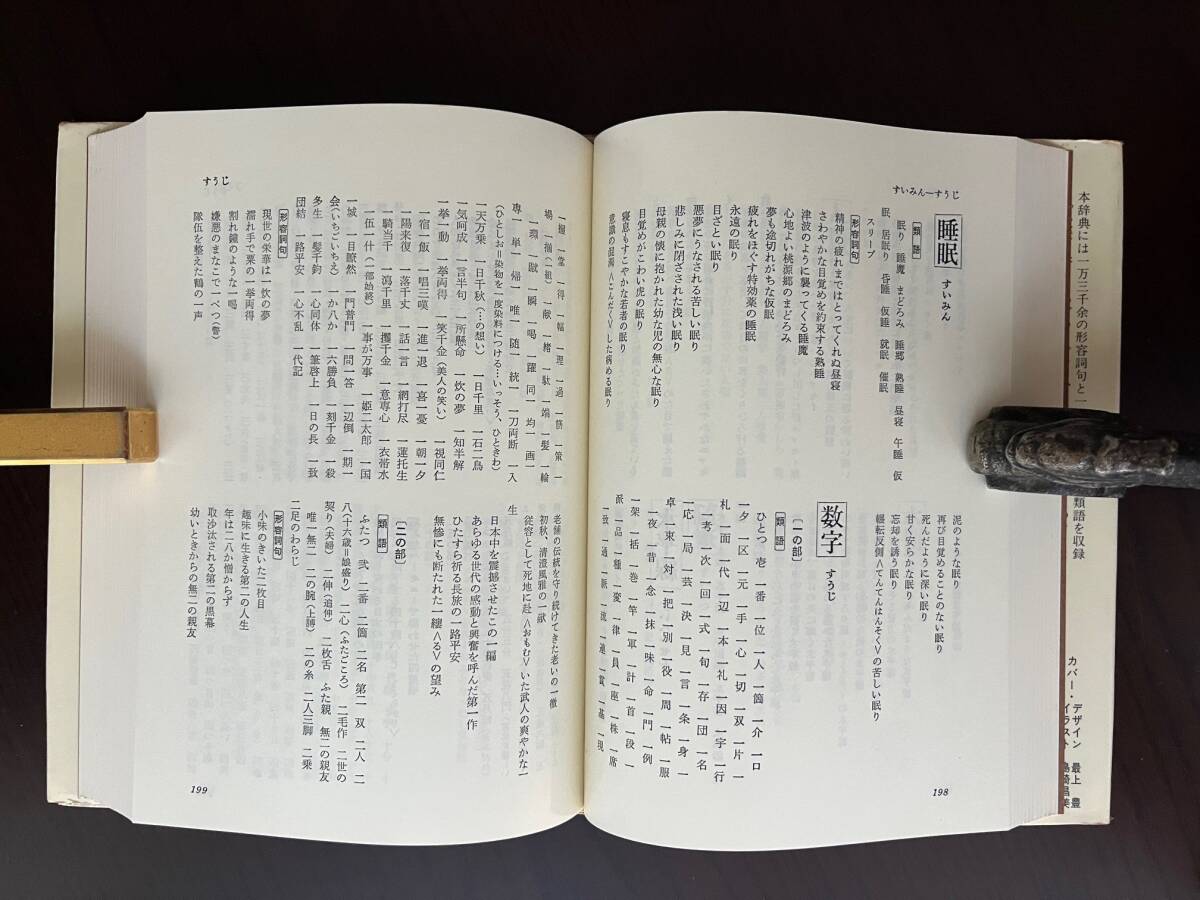 すいみん―すうじ
睡眠 すいみん
類語
眠り 睡魔 まどろみ 睡郷 熟睡 昼寝 午睡 仮
眠 居眠り 昏睡 仮睡 就眠 催眠
スリープ
形容詞句
精神の疲れまではとってくれぬ昼寝
さわやかな目覚めを約束する熟睡
津波のように襲ってくる睡魔
心地よい桃源郷のまどろみ
夢も途切れがちな仮眠
疲れをほぐす特効薬の睡眠
永遠の眠り
目ざとい眠り
悪夢にうなされる苦しい眠り
悲しみに閉ざされた浅い眠り
母親の懐に抱かれた幼な児の無心な眠り
目覚めがこわい虎の眠り
寝息もすこやかな若者の眠り
意識の混濁<こんだく>した病める眠り
泥のような眠り
再び目覚めることのない眠り
死んだように深い眠り
甘く安らかな眠り
忘却を誘う眠り
輾転反側<てんてんはんそく>の苦しい眠り
数字 すうじ
〔一の部〕
類語
ひとつ 壱 一番 一位 一人 一箇 一介 一口
一夕 一区 一元 一手 一心 一切 一双 一片 一
札 一面 一代 一辺 一本 一礼 一因 一字 一行
一考 一次 一回 一式 一旬 一存 一団 一名
一応 一局 一芸 一決 一見 一言 一条 一身 一
卓 一束 一対 一把 一別 一役 一周 一帖 一服
一夜 一昔 一念 一抹 一味 一命 一門 一例
一架 一括 一巻 一竿 一軍 一計 一首 一段 一
派 一品 一種 一変 一律 一員 一座 一株 一席
一致 一通 一脈 一流 一連 一貫 一基 一現
198
すうじ
一握 一堂 一得 一幅 一理 一過 一筋 一策 一
場 一揃(一組) 一献 一緒 一駄 一端 一髪 一輪
一環 一蹴 一瞬 一喝 一躍 同一 均一 画一
専一 単一 帰一 唯一 随一 統一 一刀両断 一入
(ひとしお=染物を一度染料につける…いっそう、ひときわ)
一天万乗 一日千秋(…の想い) 一日千里 一石二鳥
一気呵成 一言半句 一所懸命 一炊の夢 一知半解
一挙一動 一挙両得 一笑千金(美人の笑い) 一視同仁
一宿一飯 一唱三嘆 一進一退 一喜一憂 一朝一夕
一陽来復 一落千丈 一話一言 一網打尽 一蓮托生
一騎当千 一瀉千里 一攫千金 一意専心 一衣帯水
一伍一什(一部始終) 一事が万事 一姫二太郎 一国
一城 一目瞭然 一門普門 一問一答 一辺倒 一期一
会(いちごいちえ) 一か八か 一六勝負 一刻千金 一殺
多生 一髪千鈞 一心同体 一筆啓上 一日の長 一致
団結 一路平安 一心不乱 一代記
形容詞句
現世の栄華は一炊の夢
濡れ手で粟の一挙両得
割れ鐘のような一喝
嫌悪のまなこで一べつ(瞥)
隊伍を整えた鶴の一声
老舗の伝統を守り続けてきた老いの一徹
初秋、清澄風雅の一献
従容として死地に赴<おもむ>いた武人の爽やかな一
生
日本中を震撼させたこの一編
あらゆる世代の感動と興奮を呼んだ第一作
ひたすら祈る長旅の一路平安
無惨にも断たれた一縷<る>の望み
〔二の部〕
類語
ふたつ 弐 二番 二箇 二名 第二 双 二人 二
八(十六歳=娘盛り) 二心(ふたごころ) 二毛作 二世の
契り(夫婦) 二伸(追伸) 二枚舌 ふた親 無二の親友
唯一無二 二の腕(上膊) 二の糸 二人三脚 二乗
二足のわらじ
形容詞句
小味のきいた二枚目
趣味に生きる第二の人生
年は二八か憎からず
取沙汰される第二の黒幕
幼いときからの無二の親友
199
本辞典には一万三千余の形容詞句と
類語を収録
カバー・デザイン 最上 豊
イラスト 島崎昌美